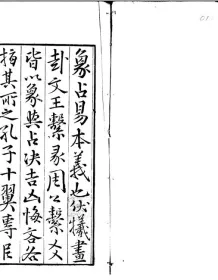 象占易本義也伏犧畫
卦文王繫彖周公繫爻
皆以象與占决吉凶悔吝各
指其所之孔子十翼專臣